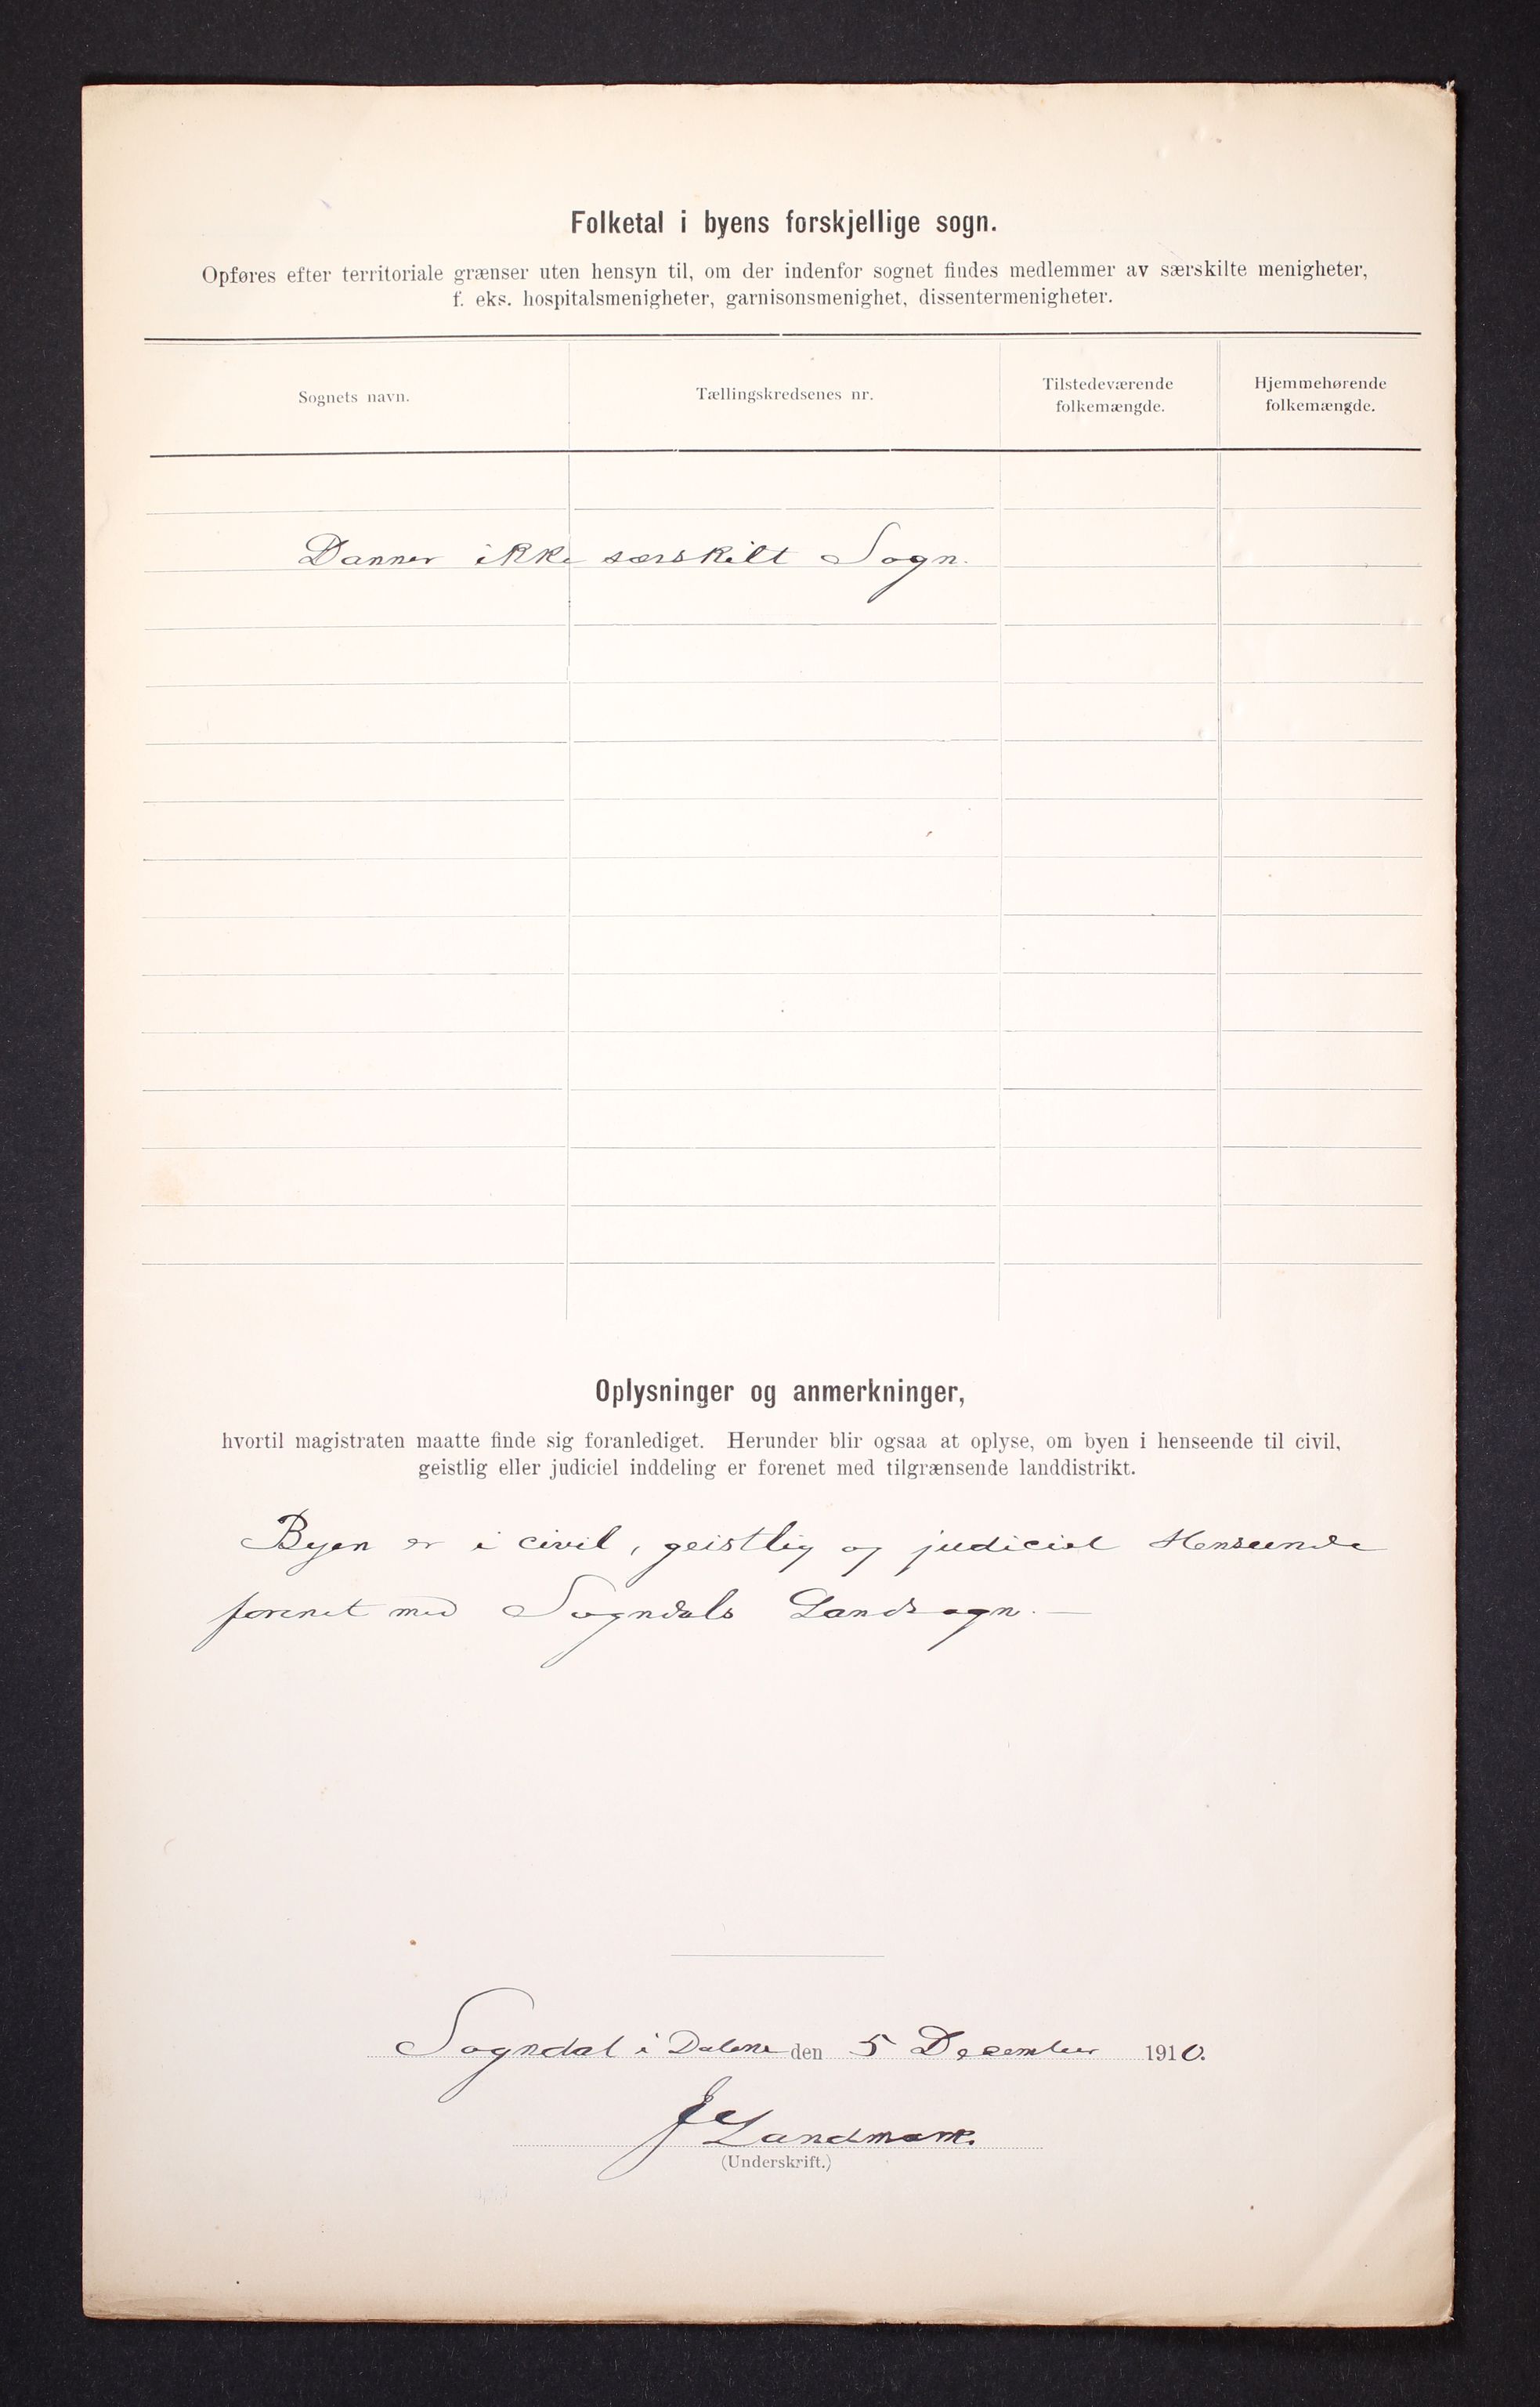 Folketal i byens forskjellige sogn.
Opføres efter territoriale grænser uten hensyn til, om der indenfor sognet findes medlemmer av særskilte menigheter,
f. eks. hospitalsmenigheter, garnisonsmenighet, dissentermenigheter.
Sognets navn. Tællingskredsenes nr. Tilstedeværende folkemængde. Hjemmehørende folkemængde.
Danner ikke særskilt Sogn.
Oplysninger og anmerkninger,
hvortil magistraten maatte finde sig foranlediget. Herunder blir ogsaa at oplyse, om byen i henseende til civil,
geistlig eller judiciel inddeling er forenet med tilgrænsende landdistrikt.
Byen er i civil, geistlig og judiciel Henseende
forenet med Sogndals Landsogn. —
Sogndal i Dalene den 5 December 1910.
J Landmark.
(Underskrift.)